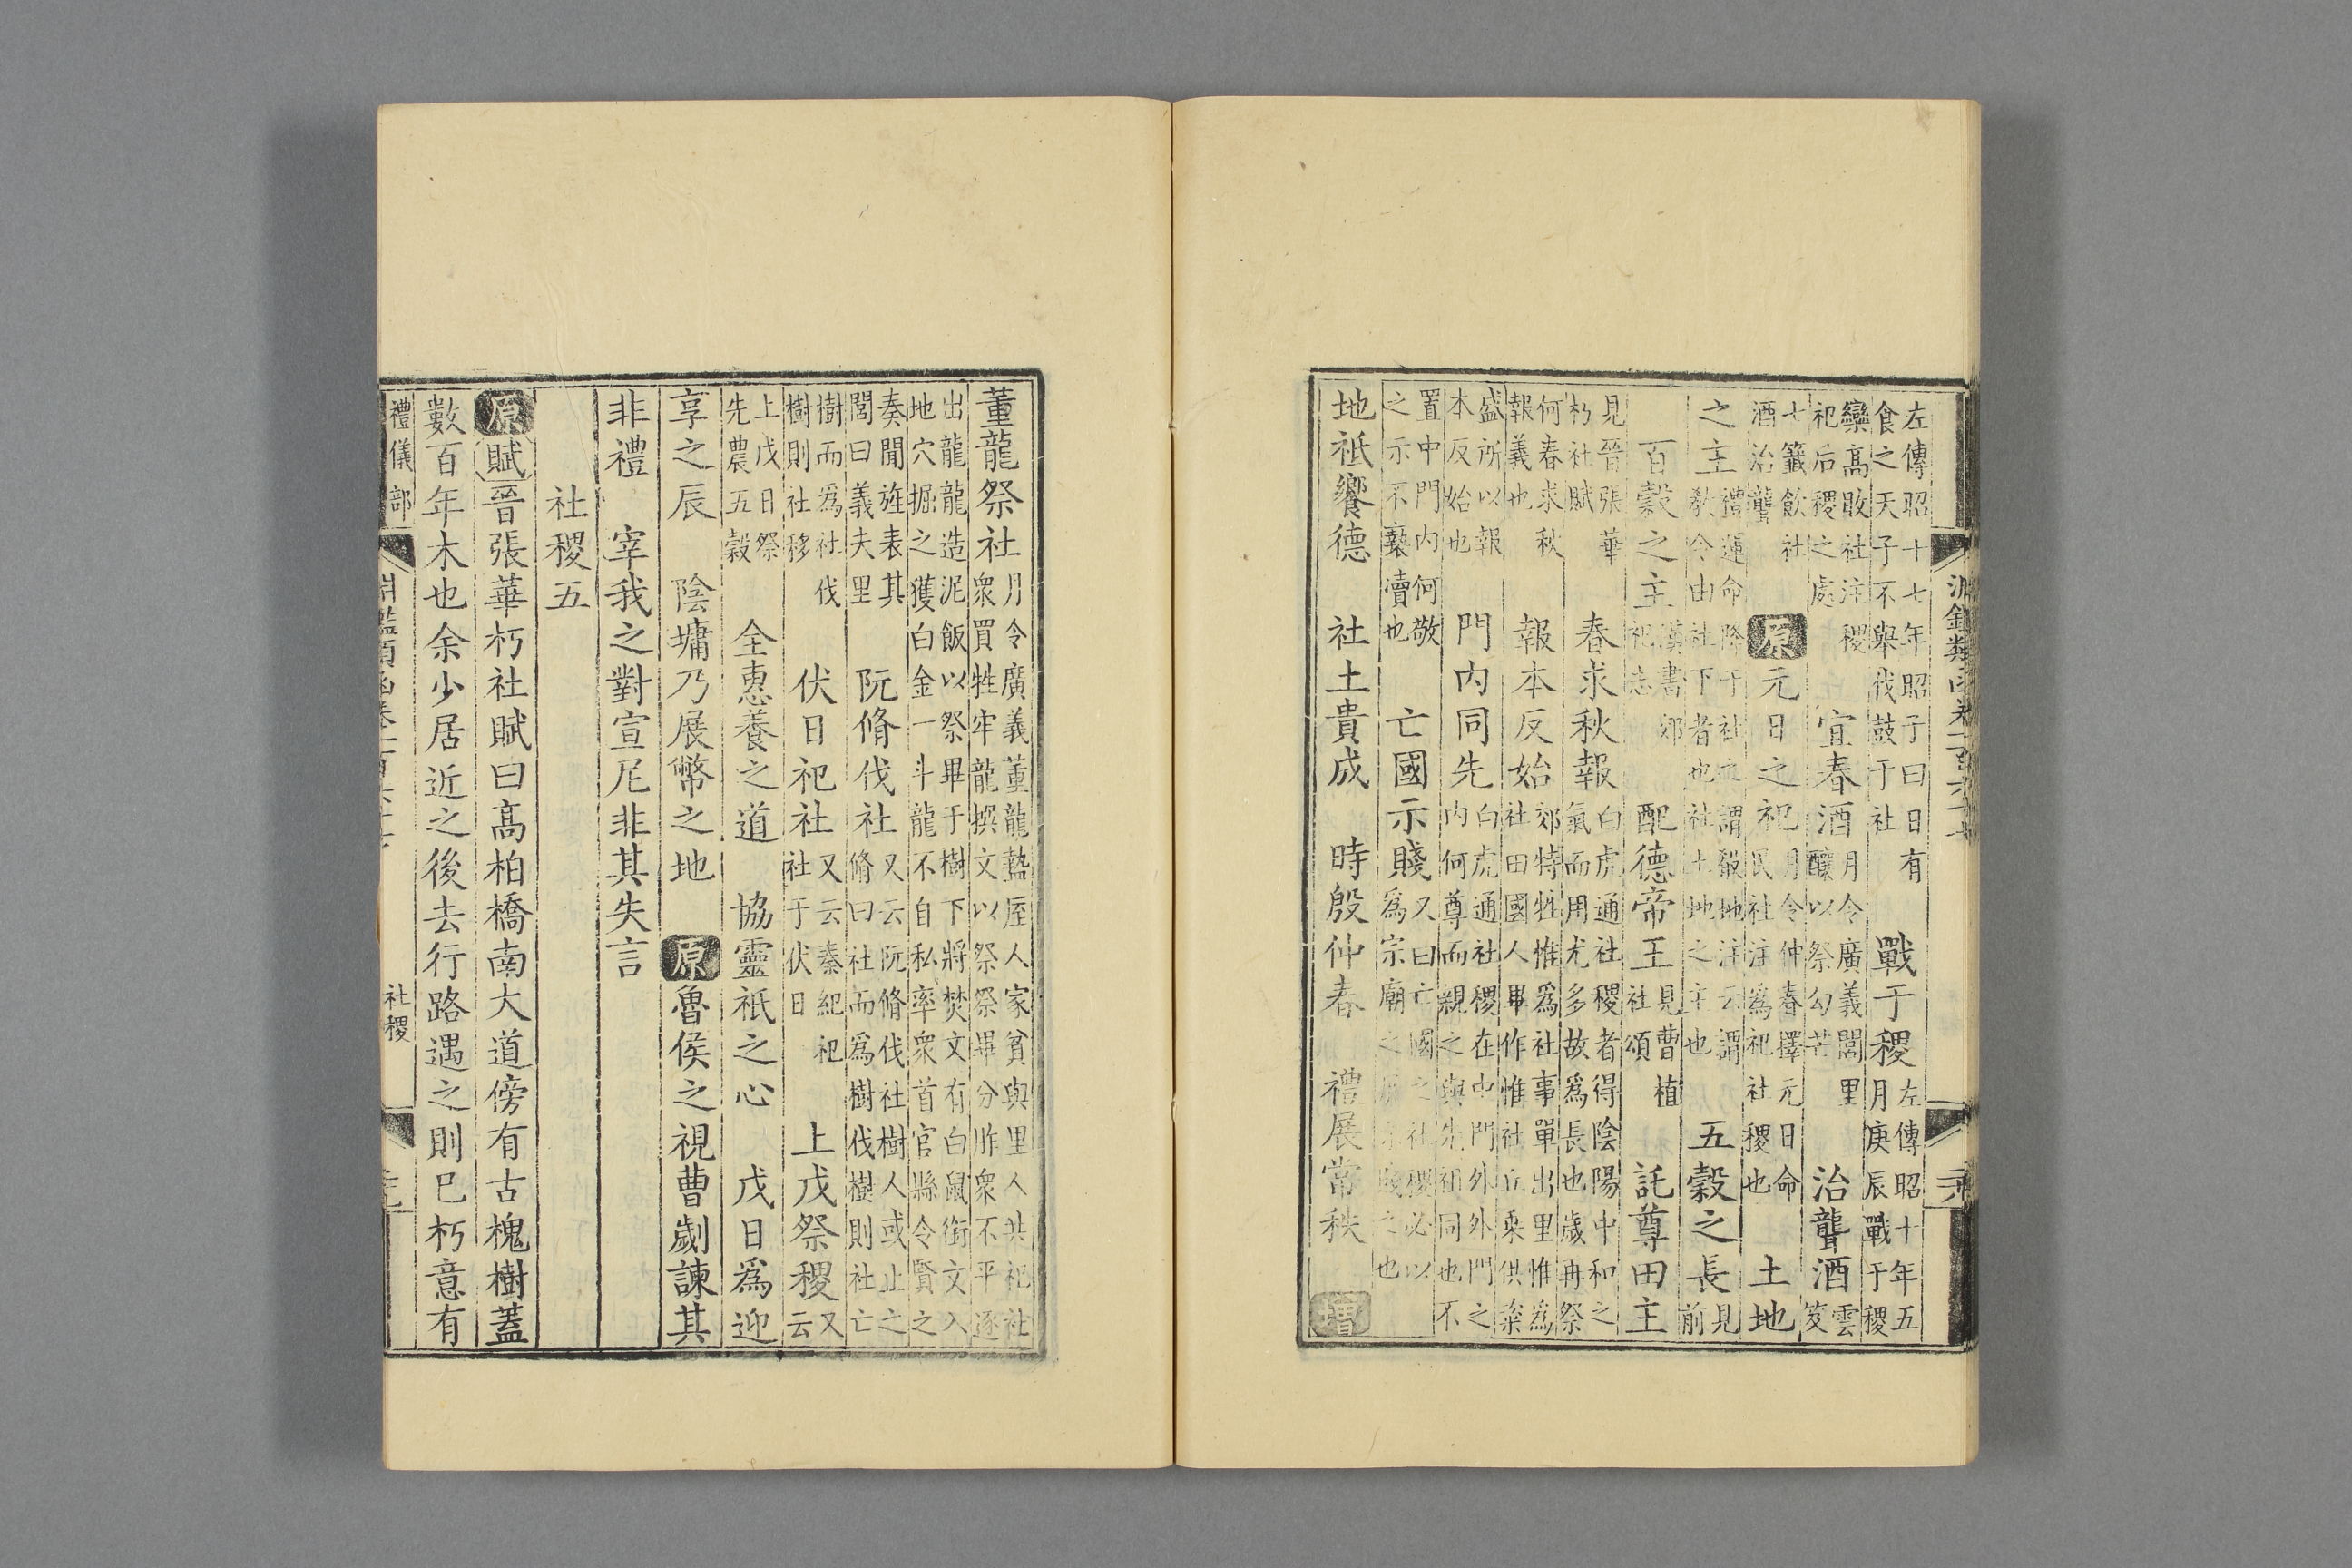 左傳昭十七年昭于曰日有
食之天子不舉伐鼓于社
戰于稷
左傳昭十年五
月庚辰戰于稷
欒高敗社注稷
祀后稷之處
宜春酒
月令廣義閭里
釀以祭勾芒
治聾酒
雲
笈
七籤飲社
酒治聾
原元日之祀
月令仲春擇元日命
民社注爲祀社稷也
土地
之主
禮運命降于社之謂殽地注云謂
教令由社下者也社土地之主也
五穀之長
見
前
百穀之主
漢書郊
祀志
配德帝王
見曹植
社頌
託尊田主
見晉張華
朽社賦
春求秋報
白虎通社稷者得陰陽中和之
氣而用尤多故爲長也歲再祭
何春求秋
報義也
報本反始
郊特牲惟爲社事單出里惟爲
社田國人畢作惟社丘乘供粢
盛所以報
本反始也
門内同先
白虎通社稷在中門外外門之
内何尊而親之與先祖同也不
置中門内何敬
之示不褻瀆也
亡國示賤
又曰亡國之社稷必以
爲宗廟之屏示賤之也
地祇饗德 社土貴成 時殷仲春 禮展常秩 增
董龍祭社
月令廣義董龍蟄厔人家貧與里人共祀社
衆買牲牢龍撰文以祭祭畢分胙衆不平逐
出龍龍造泥飯以祭畢于樹下將焚文有白鼠銜文入
地穴掘之獲白金一斗龍不自私率衆首官縣令賢之
奏聞旌表其
閭曰義夫里
阮脩伐社
又云阮脩伐社樹人或止之
脩曰社而爲樹伐樹則社亡
樹而爲社伐
樹則社移
伏日祀社
又云秦紀祀
社于伏日
上戊祭稷
又
云
上戊日祭
先農五穀
全惠養之道 協靈祇之心 戊日爲迎
享之辰 陰墉乃展幣之地 原魯侯之視曹劌諫其
非禮 宰我之對宣尼非其失言
社稷五
原賦晉張華朽社賦曰高柏橋南大道傍有古槐樹蓋
數百年木也余少居近之後去行路遇之則巳朽意有
禮儀部
社稷